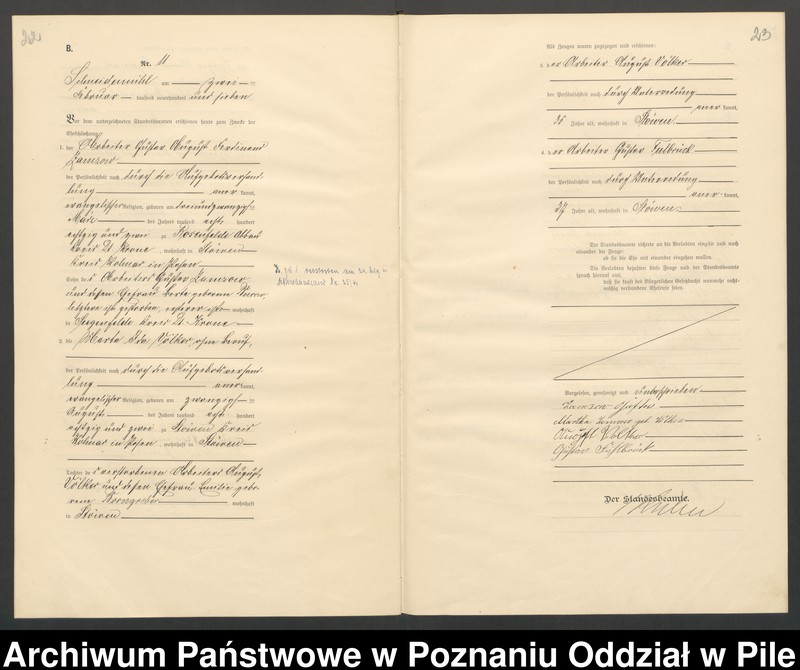 22
B.
Nr. 11
Schneidemühl am zwei ten
Februar tausend neunhundert und sieben
Vor dem unterzeichneten Standesbeamten erschienen heute zum Zwecke der
Eheschließung:
1. der Arbeiter Gustav August Ferdinand
der Persönlichkeit nach durch die Aufgebotsverhand
lung aner kannt,
evangelischer Religion, geboren am dreiundzwanzigsten
März des Jahres tausend acht hundert
achtzig und zwei zu Rosenfelde Abbau
Kreis Dt. Krone, wohnhaft in Stöwen
Kreis Kolmar in Posen
Sohn des Arbeiters Gustav
und dessen Ehefrau Berta geborenen
letztere ist gestorben, ersterer ist wohnhaft
in Seegenfelde Kreis Dt. Krone
2. die Marta Ida Völker, ohne Beruf,
der Persönlichkeit nach durch die Aufgebotsverhand
lung aner kannt,
evangelischer Religion, geboren am zwanzigsten
August des Jahres tausend acht hundert
achtzig und zwei zu Stöwen Kreis
Kolmar in Posen, wohnhaft in Stöwen
Tochter des verstorbenen Arbeiters August
Völker und dessen Ehefrau Emilie gebo
rene wohnhaft
in Stöwen
verstorben am
23
Als Zeugen waren zugezogen und erschienen:
3. der Arbeiter August Völker
der Persönlichkeit nach durch Unterredung
aner kannt,
36 Jahre alt, wohnhaft in Stöwen
4. der Arbeiter Gustav
der Persönlichkeit nach durch Unterredung
aner kannt,
27 Jahre alt, wohnhaft in Stöwen
Der Standesbeamte richtete an die Verlobten einzeln und nach
einander die Frage:
ob sie die Ehe mit einander eingehen wollen.
Die Verlobten bejahten diese Frage und der Standesbeamte
sprach hierauf aus,
daß sie kraft des Bürgerlichen Gesetzbuchs nunmehr recht-
mäßig verbundene Eheleute seien.
Vorgelesen, genehmigt und unterschrieben
Gustav
Martha geb. Völker
August Völker
Gustav
Der Standesbeamte.
Archiwum Państwowe w Poznaniu Oddział w Pile